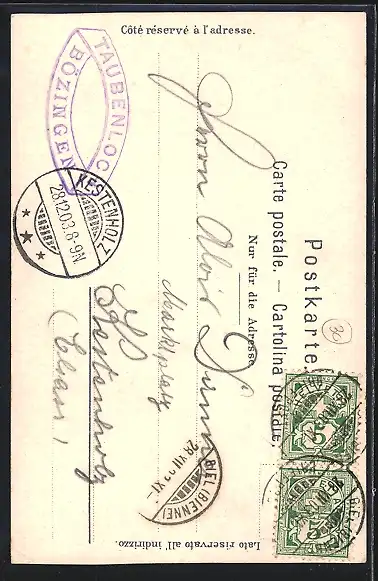 Côté réservé à l'adresse.
Postkarte.
Carte postale. — Cartolina postale.
Nur für die Adresse
Lato riservato all' indirizzo.
TAUBENLOC
BÖZINGEN
KESTENHOLZ
28.12.03.8-9N
Herrn Alois
Marktplatz
Kestenholz
(Elsass)
BIEL (BIENNE)
30
5
5